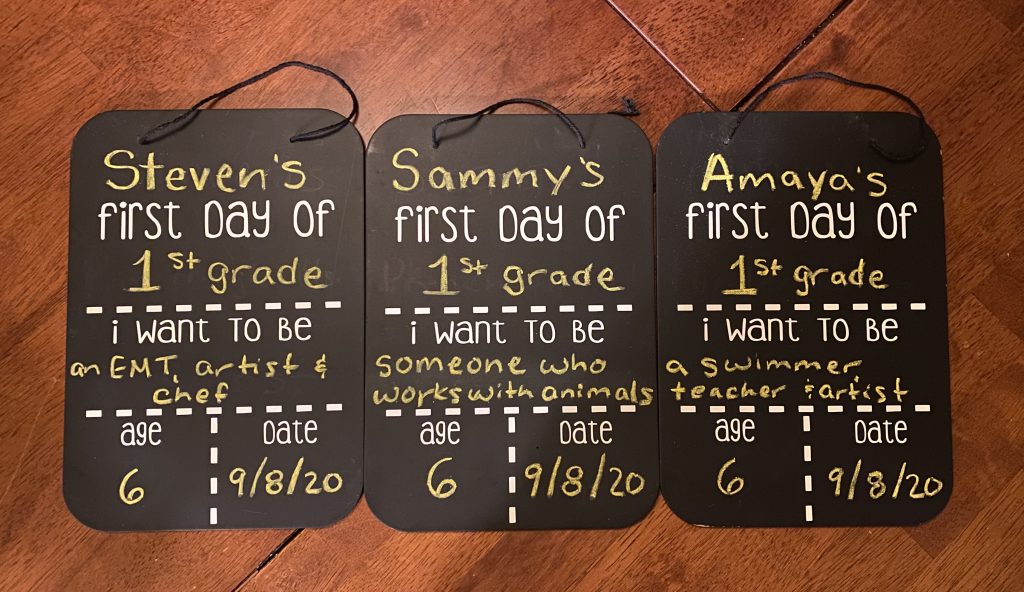 Steven's
First Day Of
1st grade
i want to be
an EMT, artist &
chef
age
Date
6
9/8/20
Sammy's
First Day Of
1st grade
i want to be
someone who
works with animals
age
Date
6
9/8/20
Amaya's
First Day Of
1st grade
i want to be
a swimmer
teacher & artist
age
Date
6
9/8/20